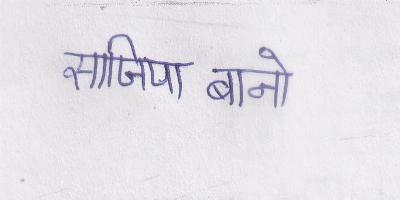 साजिया बानो